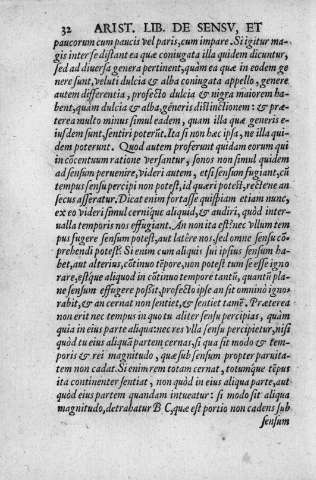 32 ARIST. LIB. DE SENSV, ET
paucorum cum paucis vel paris, cum impare. Si igitur ma-
gis inter se distant ea quæ coniugata illa quidem dicuntur,
sed ad diuersa genera pertinent, quàm ea quæ in eodem ge
nere sunt, veluti dulcia & alba coniugata appello, genere
autem differentia, profectò dulcia & nigra maiorem ha-
bent, quàm dulcia & alba, generis distinctionem: & præ-
terea multo minus simul eadem, quam illa quæ generis e-
iusdem sunt, sentiri poterũt. Ita si non hæc ipsa, ne illa qui-
dem poterunt. Quod autem proferunt quidam eorum qui
in cõcentuum ratione versantur, sonos non simul quidem
ad sensum peruenire, videri autem, etsi sensum fugiant, cũ
tempus sensu percipi non potest, id quæri potest, rectène an
secus asseratur. Dicat enim fortasse quispiam etiam nunc,
ex eo videri simul cerniq́ue aliquid, & audiri, quòd inter-
ualla temporis nos effugiant. An non ita est: nec vllum tem
pus fugere sensum potest, aut latêre nos, sed omne sensu cõ-
prehendi potest? Si enim cum aliquis sui ipsius sensum ha-
bet, aut alterius, cõtinuo tẽpore, non potest tum se esse igno
rare, estq́ue aliquod in cõtinuo tempore tantũ, quantũ pla-
ne sensum effugere possit, profectò ipse an sit omninò igno-
rabit, & an cernat non sentiet, & sentiet tamẽ. Præterea
non erit nec tempus in quo tu aliter sensu percipias, quàm
quia in eius parte aliqua: nec res vlla sensu percipietur, nisi
quòd tu eius aliquã partem cernas, si qua sit modo & tem-
poris & rei magnitudo, quæ sub sensum propter paruita-
tem non cadat. Si enim rem totam cernat, totumque tẽput
ita continenter sentiat, non quòd in eius aliqua parte, aut
quòd eius partem quandam intueatur: si modo sit aliqua
magnitudo, detrahatur B C, quæ est portio non cadens sub
sensum